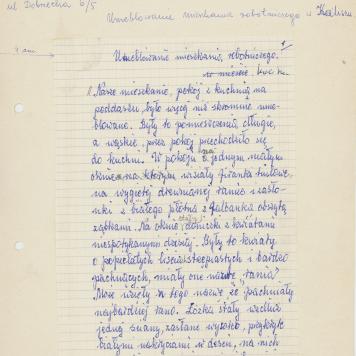 ul Dobrzecka 6/5
Umeblowanie mieszkania robotniczego w Kaliszu
4 am
1
Umeblowanie mieszkania robotniczego.
w mieście.
1. Nasze mieszkanie, pokój i kuchnia na
poddaszu, było więcej niż skromnie ume-
blowane. Były to pomieszczenia długie,
a wąskie, przez pokój przechodziło się
do kuchni. W pokoju o jednym małym
oknie na którym wisiały firanka tiulowa,
na wygiętej drewnianej ramie i zasłon-
ki z białego płótna z falbanką obszytą
ząbkami. Na oknie stały doniczki z kwiatami
niespotykanymi dzisiaj. Były to kwiaty
o popielatych liściach i bardzo
pachnących, miały one nazwę "rania"
Może wzięły się tego nazwę że pachniały
najbardziej rano. Łóżka stały wzdłuż
jednej ściany, zasłane wysoko, przykryte
białymi nakryciami w deseń, na nich